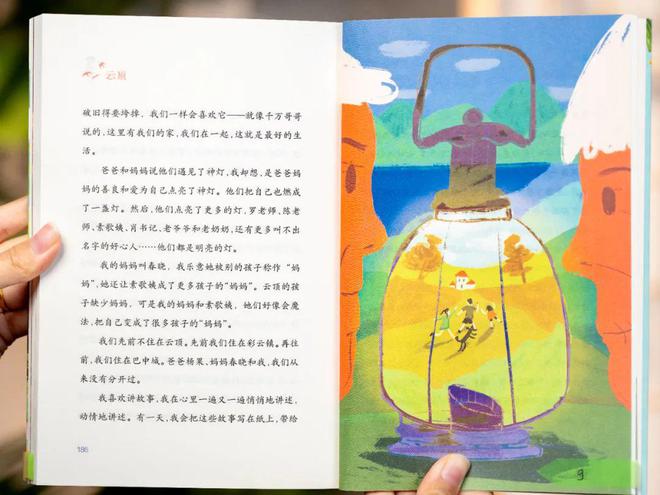 云顶
破旧得要垮掉，我们一样会喜欢它——就像千万哥哥
说的，这里有我们的家，我们在一起，这就是最好的生
活。
爸爸和妈妈说他们遇见了神灯，我却想，是爸爸妈
妈的善良和爱为自己点亮了神灯。他们把自己也燃成
了一盏灯。然后，他们点亮了更多的灯，罗老师、陈老
师、素歌姨、肖书记、老爷爷和老奶奶，还有更多叫不出
名字的好心人……他们都是明亮的灯。
我的妈妈叫春晓，我乐意她被别的孩子称作“妈
妈”，她还让素歌姨成了更多孩子的“妈妈”。云顶的孩
子缺少妈妈，可是我的妈妈和素歌姨，她们好像会魔
法，把自己变成了很多孩子的“妈妈”。
我们先前不住在云顶。先前我们住在彩云镇。再往
前，我们住在巴中城。爸爸杨果、妈妈春晓和我，我们从
来没有分开过。
我喜欢讲故事，我在心里一遍又一遍悄悄地讲述，
动情地讲述。有一天，我会把这些故事写在纸上，带给
186